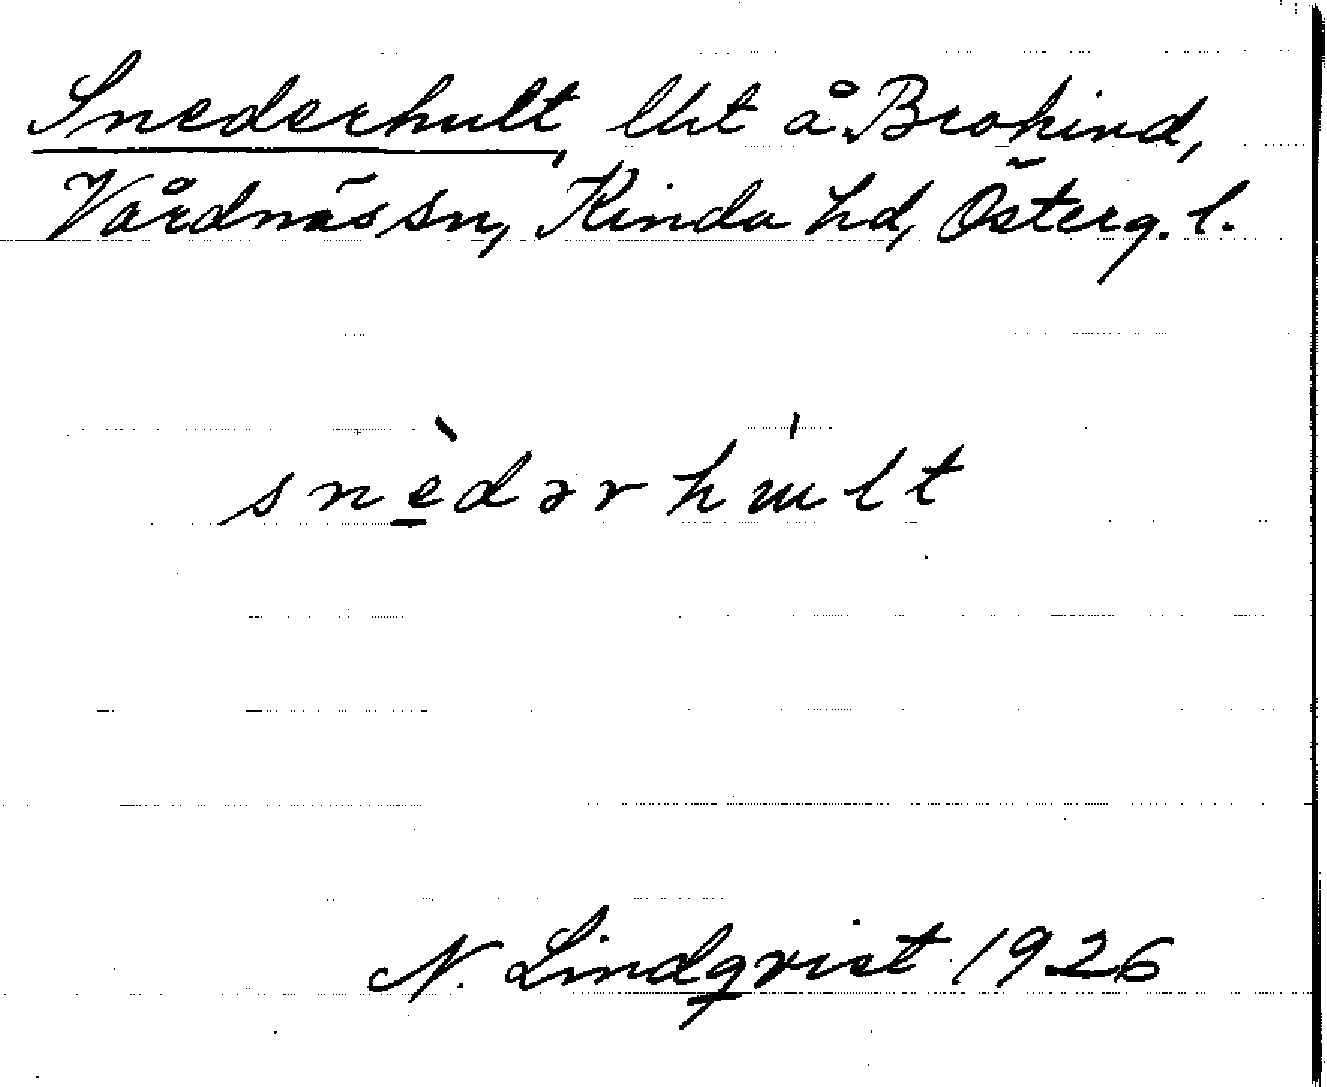 Snederhult, lht å Brokind,
Vårdnäs sn, Kinda hd, Österg. l.
snèdərhult
N. Lindqvist 1926